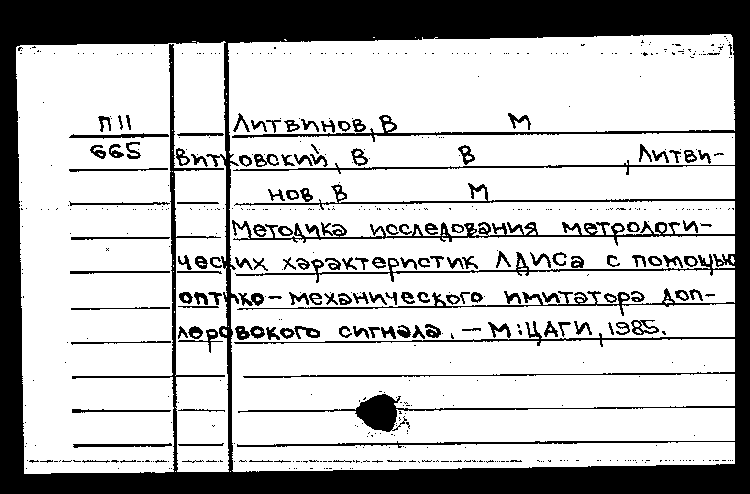 П11 Литвинов, В М
665 Витковский, В В , Литви-
нов, В М
Методика исследования метрологи-
ческих характеристик ЛДИСа с помощью
оптико-механического имитатора доп-
леровского сигнала. — М: ЦАГИ, 1985.